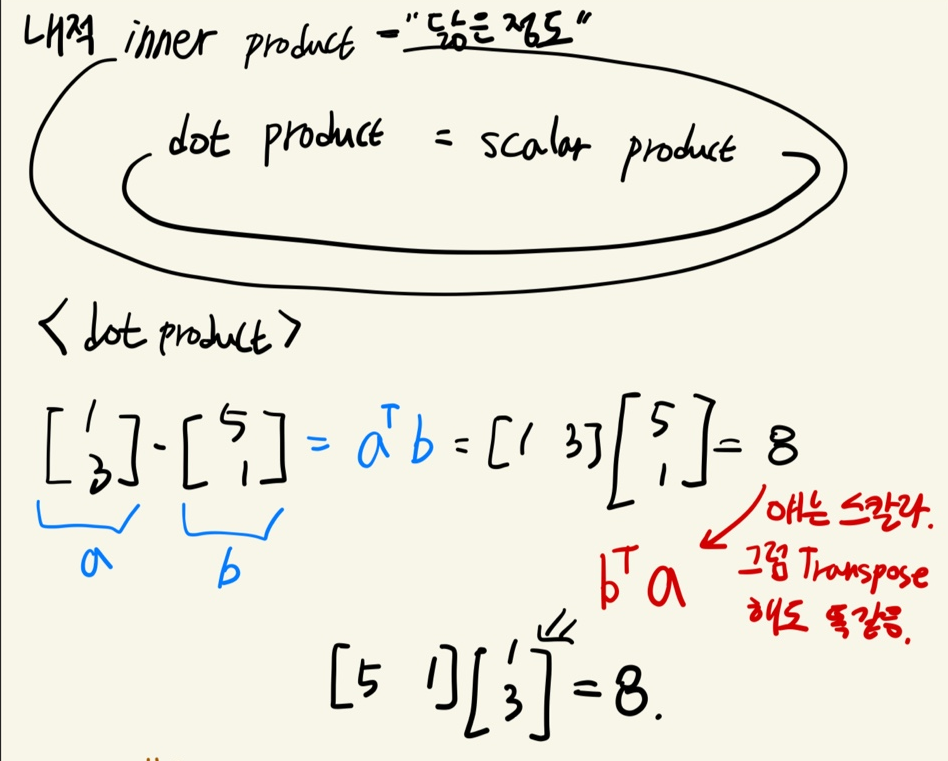 내적 inner product = "닮은 정도"
dot product = scalar product
<dot product>
[1 3] · [5 1] = aᵀb = [1 3] [5 1] = 8
a b
얘는 스칼라.
그럼 Transpose
해도 똑같음.
bᵀa
[5 1] [1 3] = 8.